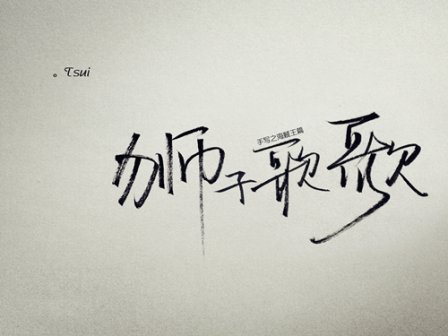 。Tsui
手写之海贼王篇
狮子歌歌